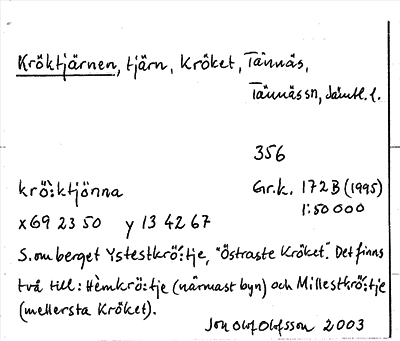 Kröktjärnen, tjärn, Kröket, Tännäs,
Tännäs sn, Jämtl. l.
356
krö̀:ktjönna
Gr.k. 172 B (1995)
1:50 000
x 69 23 50 y 13 42 67
S. om berget Ystestkrö́:tje, "Östraste Kröket". Det finns
två till: Hèmkrö:tje (närmast byn) och Millestkrö́:tje
(mellersta Kröket).
Jon Olof Olofsson 2003